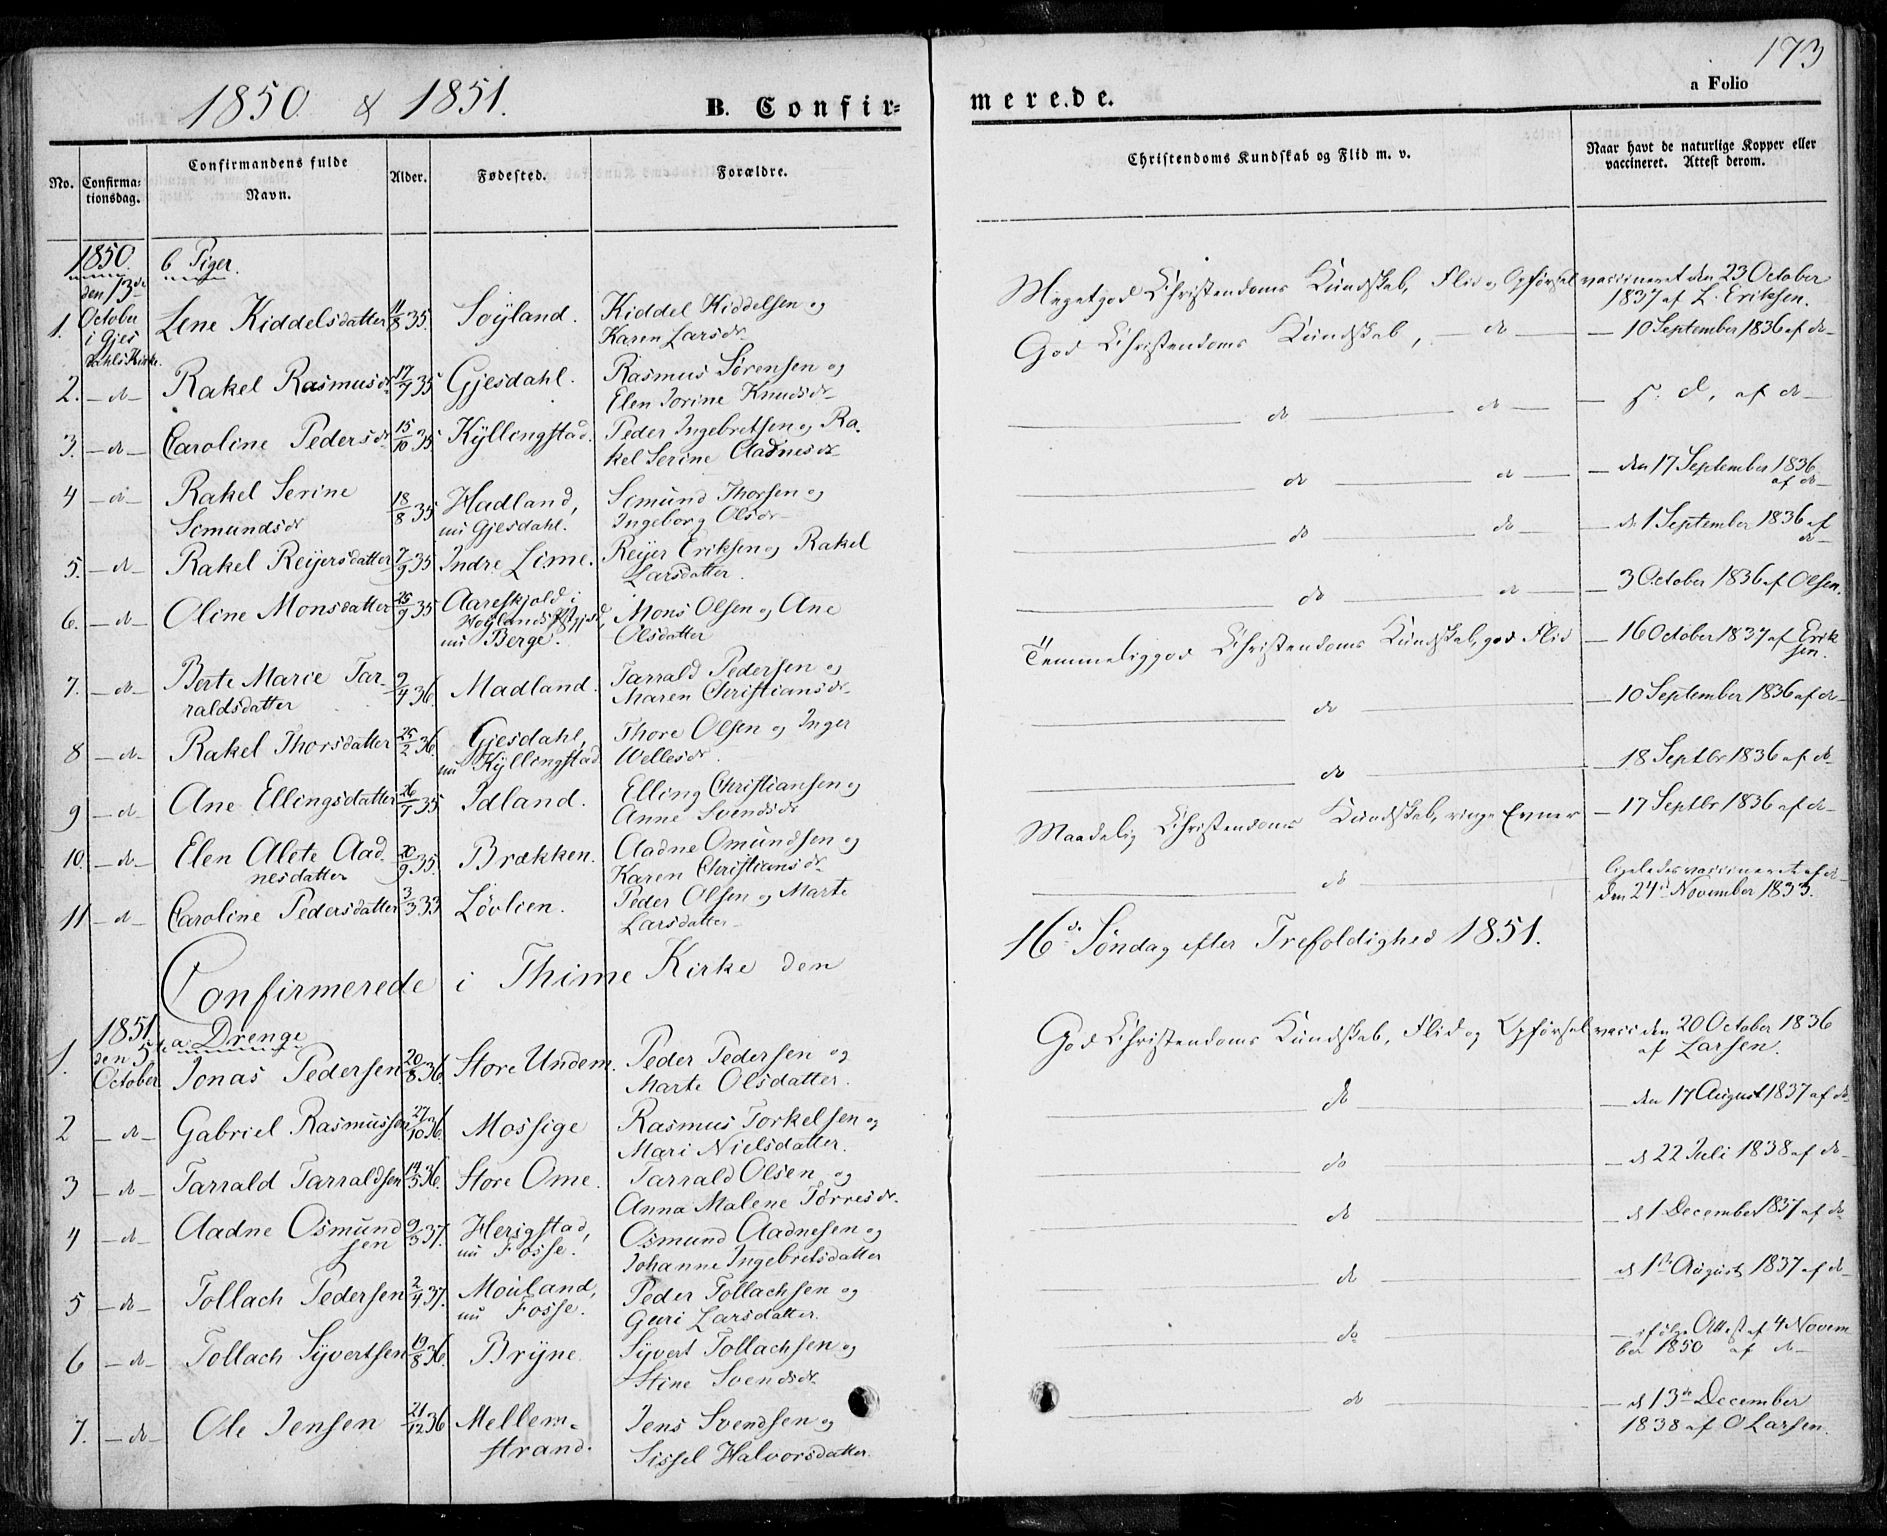 173
1850 & 1851. B. Confir= merede. a Folio
No. Confirma-tionsdag. Confirmandens fulde Navn. Alder. Fødested. Forældre. Christendoms Kundskab og Flid m. v. Naar havt de naturlige Kopper eller vaccineret. Attest derom.
1850. b Piger.
den 13de October i Gjesdahls Kirke.
1. Lene Kiddelsdatter 11/8 35. Söyland. Kiddel Kiddelsen og Karen Larsdr. Megetgod Christendoms Kundskab, Flid og Opførsel vaccineret den 23 October 1837 af L. Eriksen.
2. -do- Rakel Rasmusdr 17/9 35 Gjesdahl. Rasmus Sørensen og Elen Jorine Knudsdr God Christendoms Kundskab, - do - - 10 September 1836 af do-
3. -do- Caroline Pedersdr 15/10 35 Kÿllingstad. Peder Ingebretsen og Rakel Serine Aadnesdr do do - s. d. af do-
4 -do- Rakel Serine Semundsdr 18/8 35 Hadland, nu Gjesdahl. Semund Thorsen og Ingeborg Olsdr do do - den 17 September 1836 af do-
5. -do- Rakel Reijersdatter 7/9 35 Indre Lime. Reijer Eriksen og Rakel Larsdatter. do do - d 1 September 1836 af do-
6. -do- Oline Monsdatter 25/9 35 Aareskjold i Høylands Pgjeld, nu Berge. Mons Olsen og Ane Olsdatter do do - 3 October 1836 af Olsen.
7. -do- Berte Marie Tarraldsdatter 2/4 36. Madland. Tarrald Pedersen og Maren Christiansdr Temmeliggod Christendoms Kundskab, god Flid - 16 October 1837 af Eriksen.
8 -do- Rakel Thorsdatter 25/2 36. Gjesdahl, nu Kÿllingstad Thore Olsen og Inger Wellesdr. do - 10 September 1836 af do-
9 -do- Ane Ellingsdatter 26/7 35 Idland. Elling Christiansen og Anne Svendsdr do - 18 Septbr 1836 af do-
10. -do- Elen Alete Aadnesdatter 20/9 35. Brækken. Aadne Omundsen og Karen Christiansdr Maadelig Christendoms Kundskab, ringe Evner - 17 Septbr 1836 af do-
11 -do- Caroline Pedersdatter 3/3 33 Lövlien. Peder Olsen og Marte Larsdatter- do ligeledes vaccineret af do- den 24de November 1833.
Confirmerede i Thime Kirke den 16de Søndag efter Trefoldighed 1851.
1851. a. Drenge
den 5te October
1. Jonas Pedersen 20/8 36. Store Undem. Peder Pedersen og Marte Olsdatter. God Christendoms Kundskab, Flid og Opførsel vacc den 20 October 1836 af Larsen.
2 -do- Gabriel Rasmussen 27/10 36. Mossige Rasmus Torkelsen og Mari Nielsdatter. do - den 17 August 1837 af do-
3 -do- Tarrald Tarraldsen 14/5 36. Store Ome. Tarrald Olsen og Anna Malene Tørresdr. do - d 22 Juli 1838 af do-
4 -do- Aadne Osmundsen 9/5 37. Herigstad, nu Fosse. Osmund Aadnesen og Johanne Ingebretsdatter do - d 1 December 1837 af do-
5 -do- Tollach Pedersen 2/4 37. Mouland, nu Fosse. Peder Tollachsen og Guri Larsdatter. do - d 1ste August 1837 af do-
6 -do- Tollach Sÿvertsen 19/8 36. Brÿne. Sÿvert Tollachsen og Stine Svendsdr do - ifølge Attest af 4 November 1850 af do-
7. -do- Ole Jensen 21/12 36 Mellemstrand. Jens Svendsen og Sissel Halvorsdatter. do - d 13de December 1838 af O Larsen.